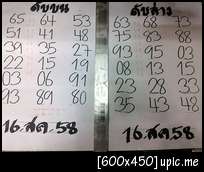 ดับบน
65 64 53
51 41 48
39 35 27
22 15 19
03 06 91
93 89 80
16 สค 58
ดับล่าง
63 68 73
75 83 88
93 95 03
08 13 15
23 28 33
35 43 48
16 สค 58
[600x450] upic.me